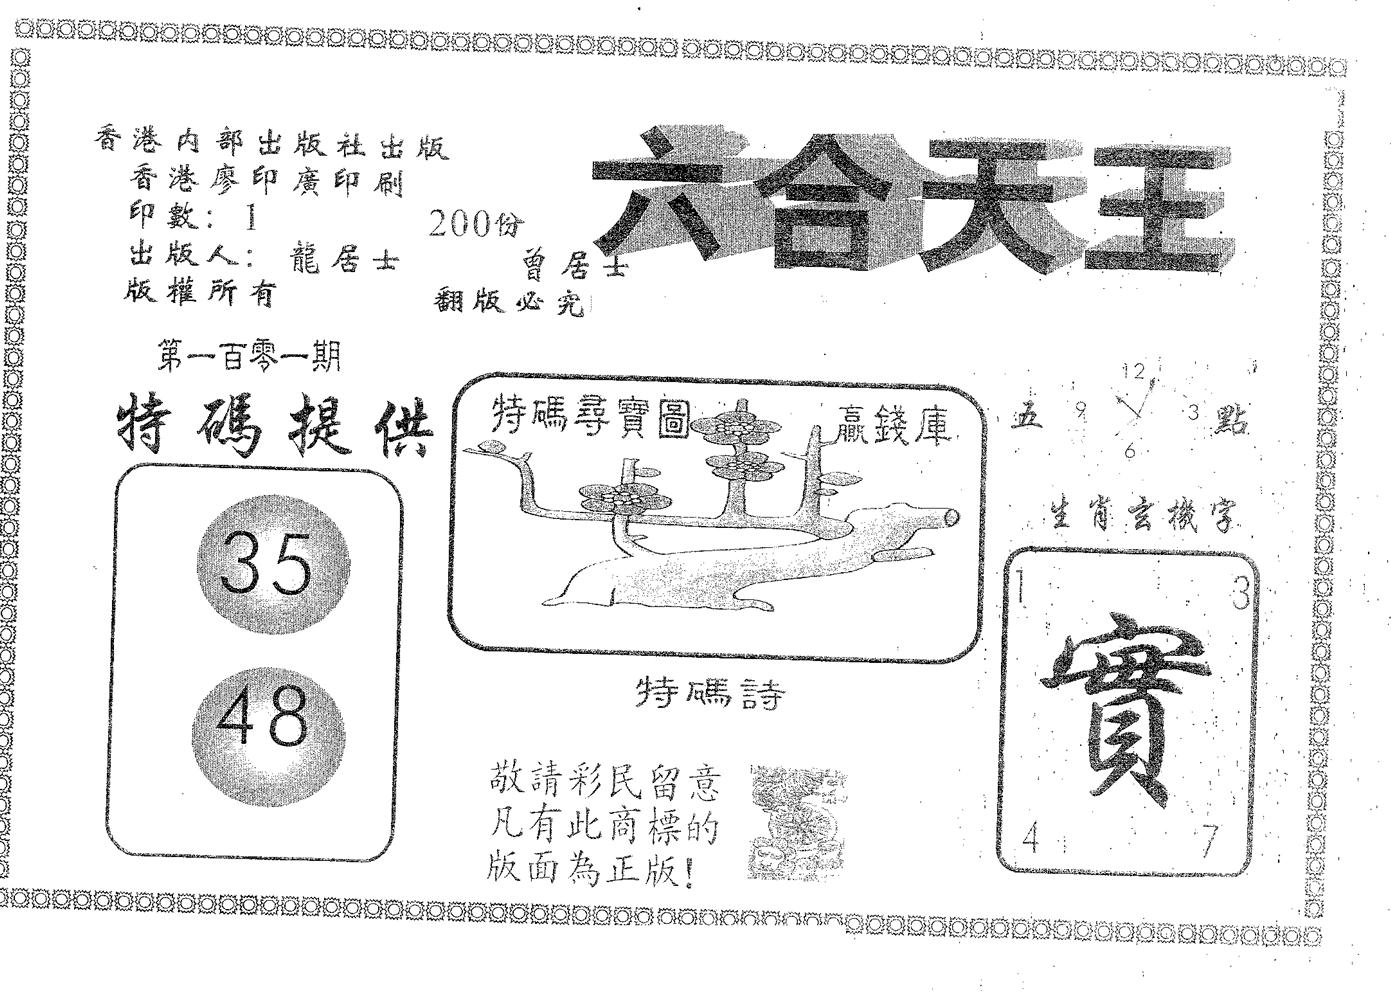 香港内部出版社出版
香港廖印廣印刷
印數：1 200份
出版人：龍居士 曾居士
版權所有 翻版必究
六合天王
第一百零一期
特碼提供
35
48
特碼尋寶圖 贏錢庫
特碼詩
敬請彩民留意
凡有此商標的
版面為正版！
12
五 9 3 點
6
生肖玄機字
1 3
實
4 7